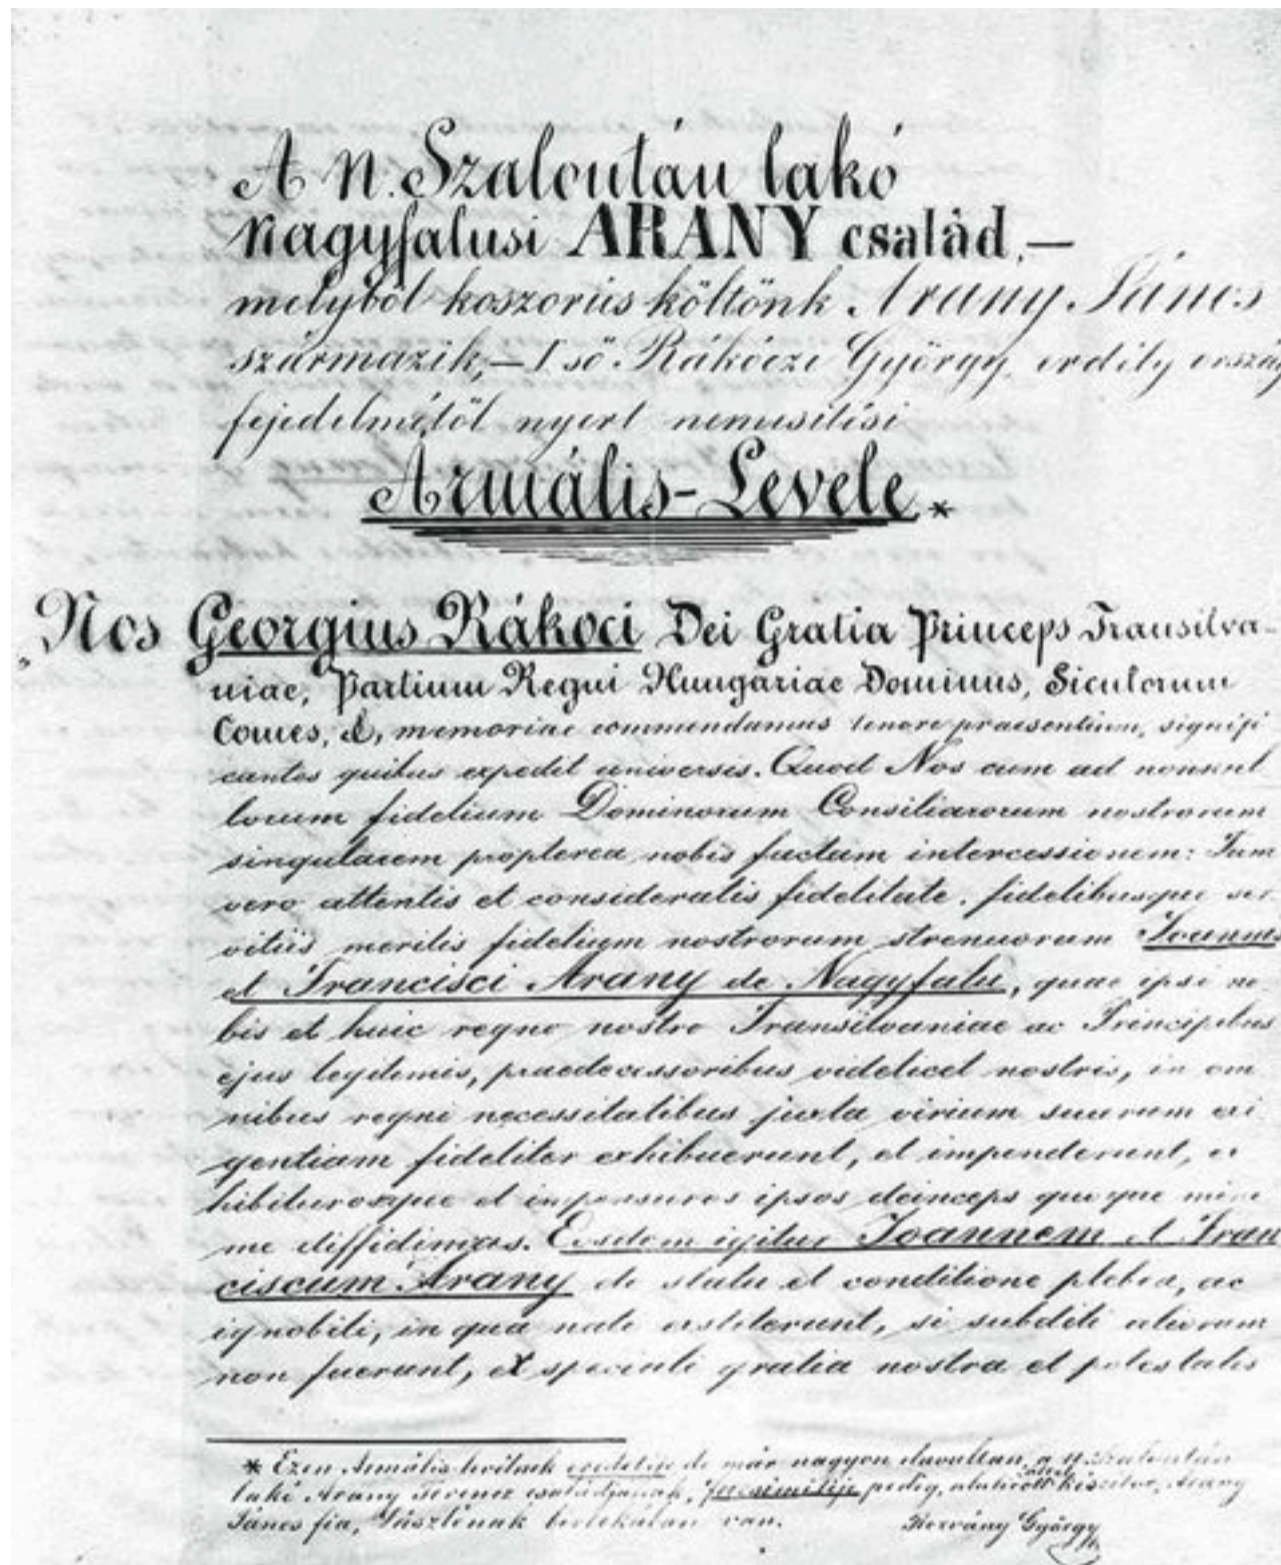 A N. Szalontán lakó
nagyfalusi ARANY család,—
melyből koszorús költőnk Arany János
származik,—Iső Rákóczi György, erdély ország
fejedelmétől nyert nemesitési
Ármális-Levele*
Nos Georgius Rákoci Dei Gratia Princeps Transilva-
niae, Partium Regni Hungariae Dominus, Siculorum
Comes, &, memoriae commendamus tenore praesentium, signifi
cantes quibus expedit universis. Quod Nos cum ad nonnul
lorum fidelium Dominorum Consiliarorum nostrorum
singularem propterea nobis factam intercessionem: Tum
vero attentis et consideratis fidelitate, fidelibusque ser
vitiis meritis fidelium nostrorum strenuorum Joannis
et Francisci Arany de Nagyfalu, quae ipsi no
bis et huic regno nostro Transilvaniae ac Principibus
ejus legitimis, praedecessoribus videlicet nostris, in om
nibus regni necessitatibus juxta virium suarum exi
gentiam fideliter exhibuerunt, et impenderunt, ex
hibiturosque et impensuros ipsos deinceps quoque mini
me diffidimus. Eosdem igitur Joannem et Fran
ciscum Arany de statu et conditione plebea, ac
ignobili, in qua nati extiterunt, si subditi aliorum
non fuerunt, ex speciali gratia nostra et potestatis
* Ezen Armális-levélnek eredetije de már nagyon elavultan, a N. Szalontán
lakó Arany Ferencz családjának, facsimiléje pedig, általa kiszitve, Arany
János fia, Lászlónak birtokában van. Rozvány György